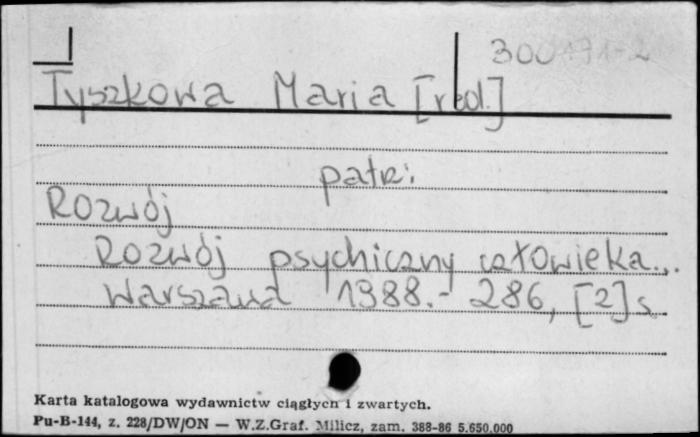 300191-2
Tyszkowa Maria [red.]
patrz:
Rozwój
Rozwój psychiczny człowieka...
Warszawa 1988.- 286, [2] s
Karta katalogowa wydawnictw ciągłych i zwartych.
Pu-B-144, z. 228/DW/ON — W.Z.Graf. Milicz, zam. 388-86 5.650.000